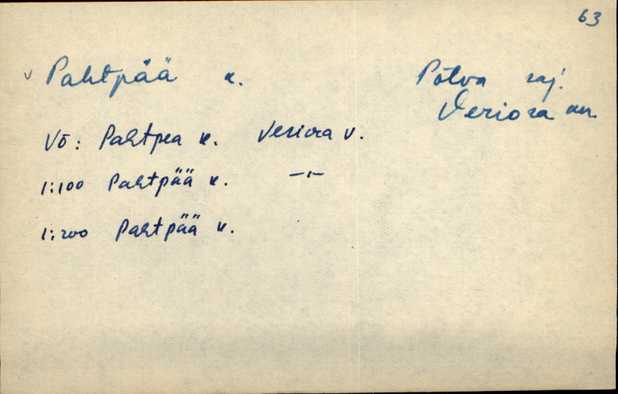 63
v Pahtpää k. Põlva raj.
Veriora kn.
VÕ: Pahtpea k. Veriora v.
1:100 Pahtpää k. -"-
1:200 Pahtpää k.